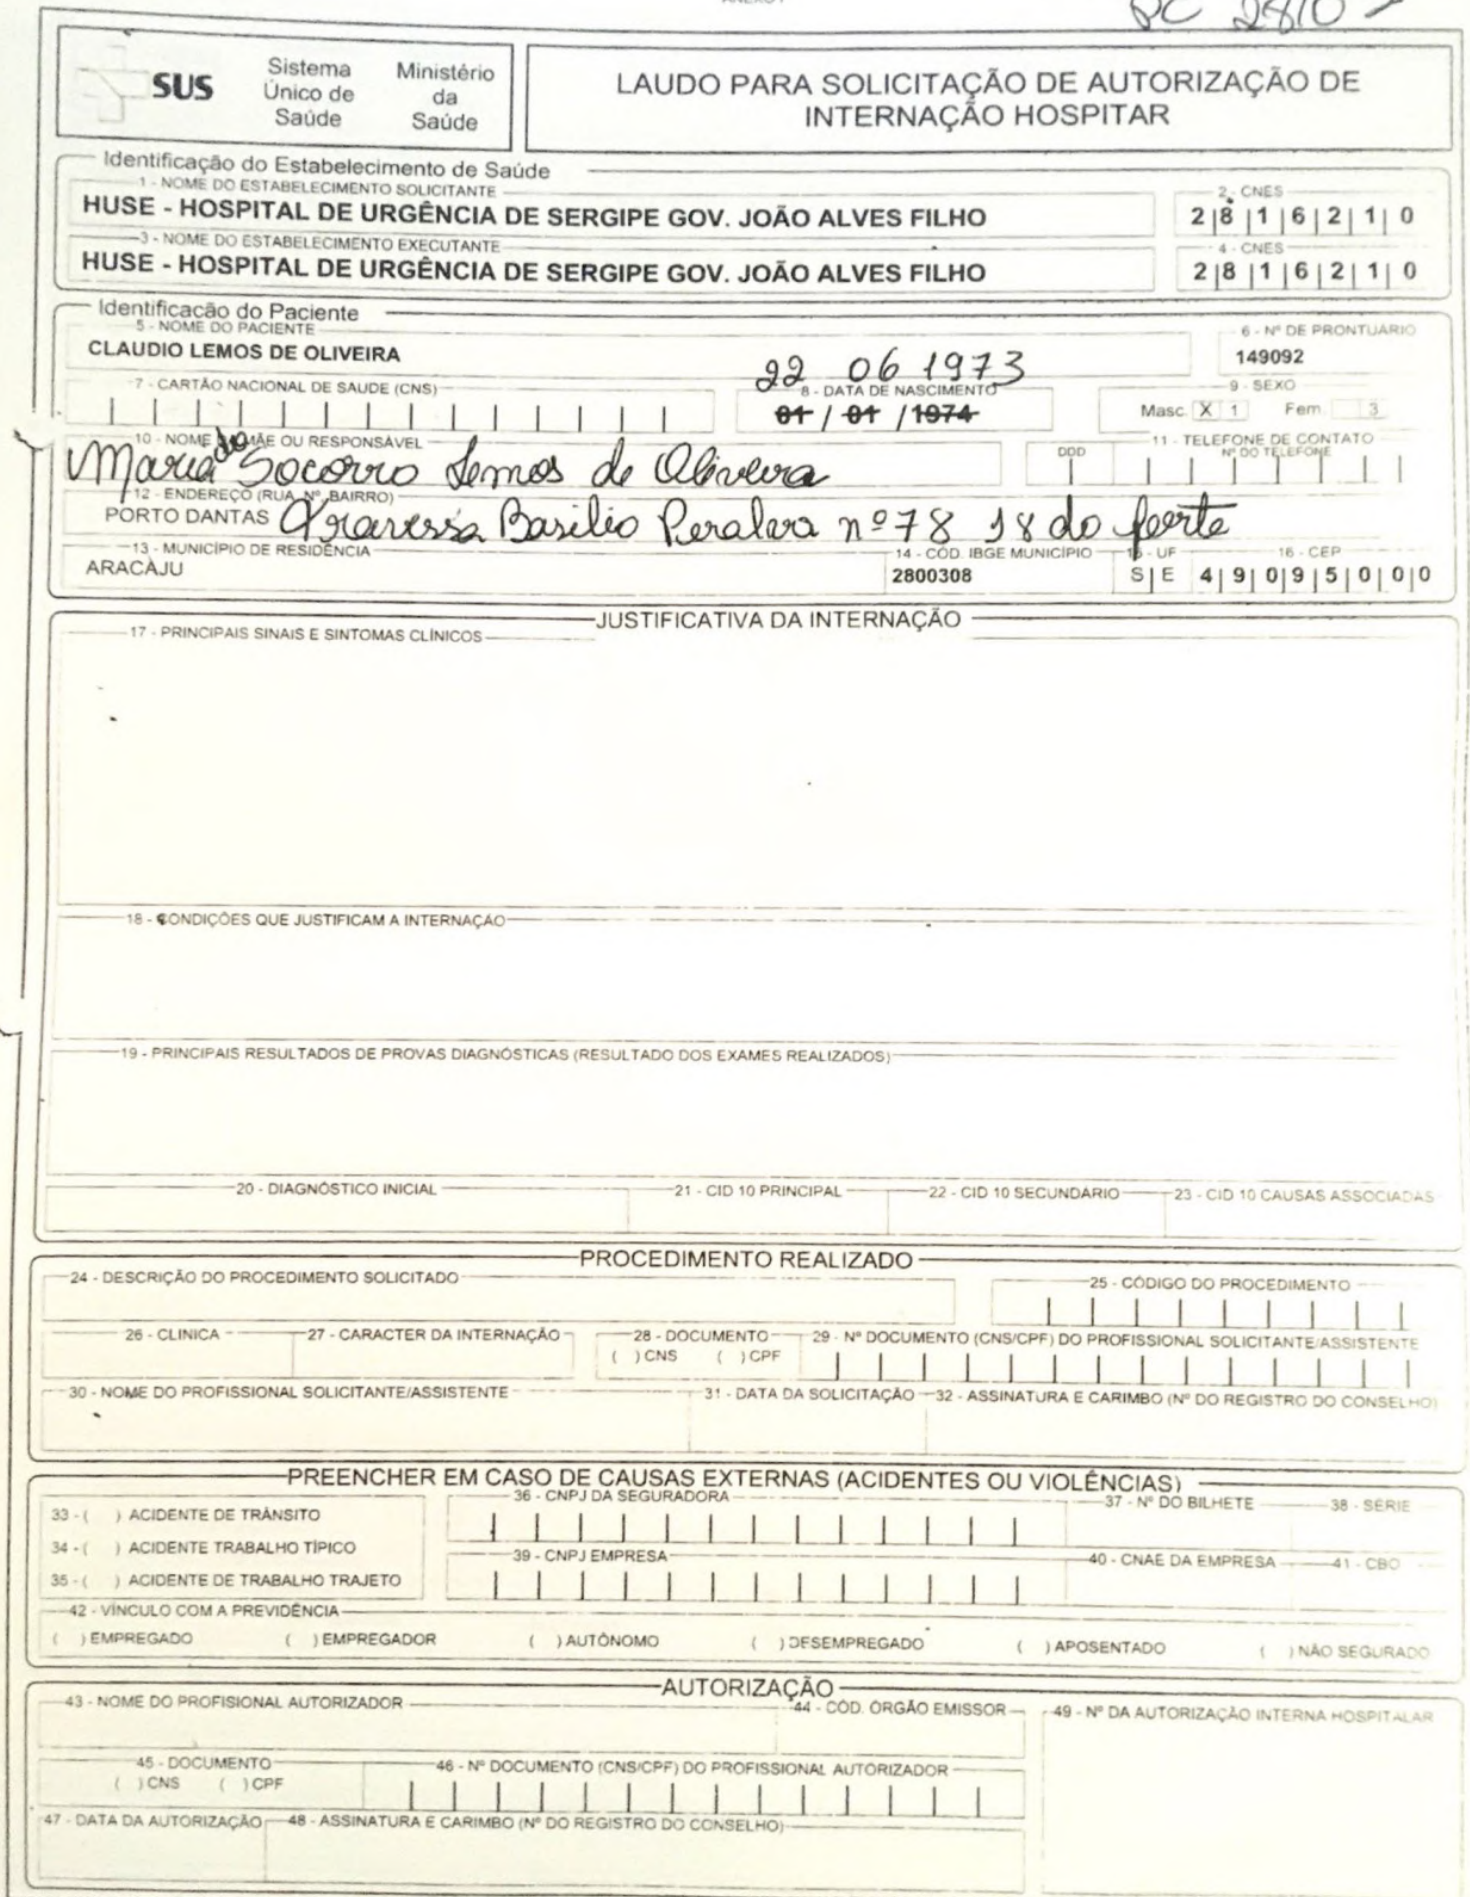 PC 2810
SUS
Sistema Único de Saúde
Ministério da Saúde
LAUDO PARA SOLICITAÇÃO DE AUTORIZAÇÃO DE
INTERNAÇÃO HOSPITAR
Identificação do Estabelecimento de Saúde
1 - NOME DO ESTABELECIMENTO SOLICITANTE
2 - CNES
HUSE - HOSPITAL DE URGÊNCIA DE SERGIPE GOV. JOÃO ALVES FILHO
2|8|1|6|2|1|0
3 - NOME DO ESTABELECIMENTO EXECUTANTE
4 - CNES
HUSE - HOSPITAL DE URGÊNCIA DE SERGIPE GOV. JOÃO ALVES FILHO
2|8|1|6|2|1|0
Identificação do Paciente
5 - NOME DO PACIENTE
6 - Nº DE PRONTUÁRIO
CLAUDIO LEMOS DE OLIVEIRA
149092
22 06 1973
7 - CARTÃO NACIONAL DE SAUDE (CNS)
8 - DATA DE NASCIMENTO
9 - SEXO
01 / 01 / 1974
Masc. X 1 Fem 3
10 - NOME DA MÃE OU RESPONSÁVEL
11 - TELEFONE DE CONTATO
DDD
Nº DO TELEFONE
Maria do Socorro Lemos de Oliveira
12 - ENDEREÇO (RUA, Nº, BAIRRO)
PORTO DANTAS Travessa Basilio Peralva nº 78 18 do forte
13 - MUNICÍPIO DE RESIDÊNCIA
14 - CÓD. IBGE MUNICÍPIO
15 - UF
16 - CEP
ARACAJU
2800308
S|E
4|9|0|9|5|0|0|0
JUSTIFICATIVA DA INTERNAÇÃO
17 - PRINCIPAIS SINAIS E SINTOMAS CLÍNICOS
18 - CONDIÇÕES QUE JUSTIFICAM A INTERNAÇÃO
19 - PRINCIPAIS RESULTADOS DE PROVAS DIAGNÓSTICAS (RESULTADO DOS EXAMES REALIZADOS)
20 - DIAGNÓSTICO INICIAL
21 - CID 10 PRINCIPAL
22 - CID 10 SECUNDÁRIO
23 - CID 10 CAUSAS ASSOCIADAS
PROCEDIMENTO REALIZADO
24 - DESCRIÇÃO DO PROCEDIMENTO SOLICITADO
25 - CÓDIGO DO PROCEDIMENTO
26 - CLINICA
27 - CARACTER DA INTERNAÇÃO
28 - DOCUMENTO
29 - Nº DOCUMENTO (CNS/CPF) DO PROFISSIONAL SOLICITANTE/ASSISTENTE
( ) CNS ( ) CPF
30 - NOME DO PROFISSIONAL SOLICITANTE/ASSISTENTE
31 - DATA DA SOLICITAÇÃO
32 - ASSINATURA E CARIMBO (Nº DO REGISTRO DO CONSELHO)
PREENCHER EM CASO DE CAUSAS EXTERNAS (ACIDENTES OU VIOLÊNCIAS)
33 - ( ) ACIDENTE DE TRÂNSITO
36 - CNPJ DA SEGURADORA
37 - Nº DO BILHETE
38 - SÉRIE
34 - ( ) ACIDENTE TRABALHO TÍPICO
39 - CNPJ EMPRESA
40 - CNAE DA EMPRESA
41 - CBO
35 - ( ) ACIDENTE DE TRABALHO TRAJETO
42 - VÍNCULO COM A PREVIDÊNCIA
( ) EMPREGADO ( ) EMPREGADOR ( ) AUTÔNOMO ( ) DESEMPREGADO ( ) APOSENTADO ( ) NÃO SEGURADO
AUTORIZAÇÃO
43 - NOME DO PROFISIONAL AUTORIZADOR
44 - CÓD. ÓRGÃO EMISSOR
49 - Nº DA AUTORIZAÇÃO INTERNA HOSPITALAR
45 - DOCUMENTO
46 - Nº DOCUMENTO (CNS/CPF) DO PROFISSIONAL AUTORIZADOR
( ) CNS ( ) CPF
47 - DATA DA AUTORIZAÇÃO
48 - ASSINATURA E CARIMBO (Nº DO REGISTRO DO CONSELHO)